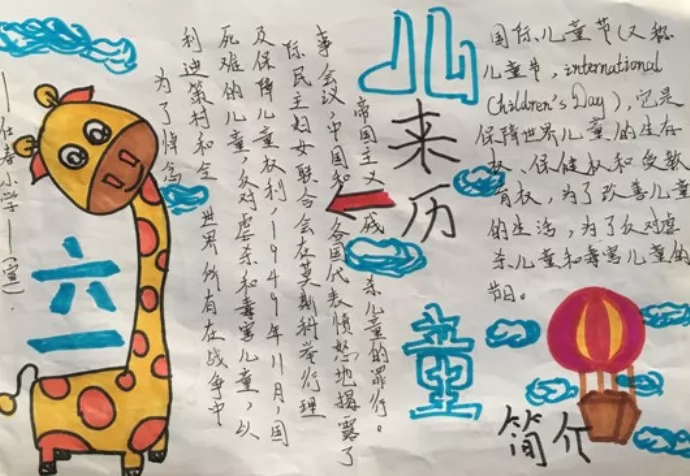 国际儿童节(又称
儿童节,international
Children's Day),它是
保障世界儿童的生存
权、保健权和受教
育权,为了改善儿童
的生活,为了反对虐
杀儿童和毒害儿童的
节日。
简介
儿
童
来历
为了悼念
利迪策村和全世界所有在战争中
死难的儿童,反对虐杀和毒害儿童,以
及保障儿童权利,1949年11月,国
际民主妇女联合会在莫斯科举行理
事会议,中国和各国代表愤怒地揭露了
帝国主义 杀儿童的罪行。
六一
小学